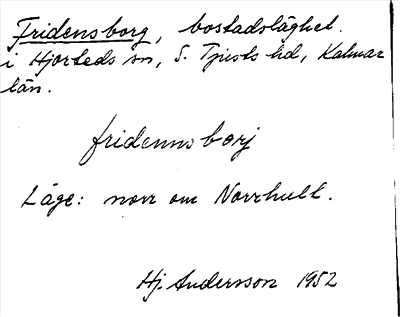 Fridensborg, bostadsläghet.
i Hjorteds sn, S. Tjusts hd, Kalmar
län.
fridennsborj
Läge: norr om Norrhult.
Hj. Andersson 1952